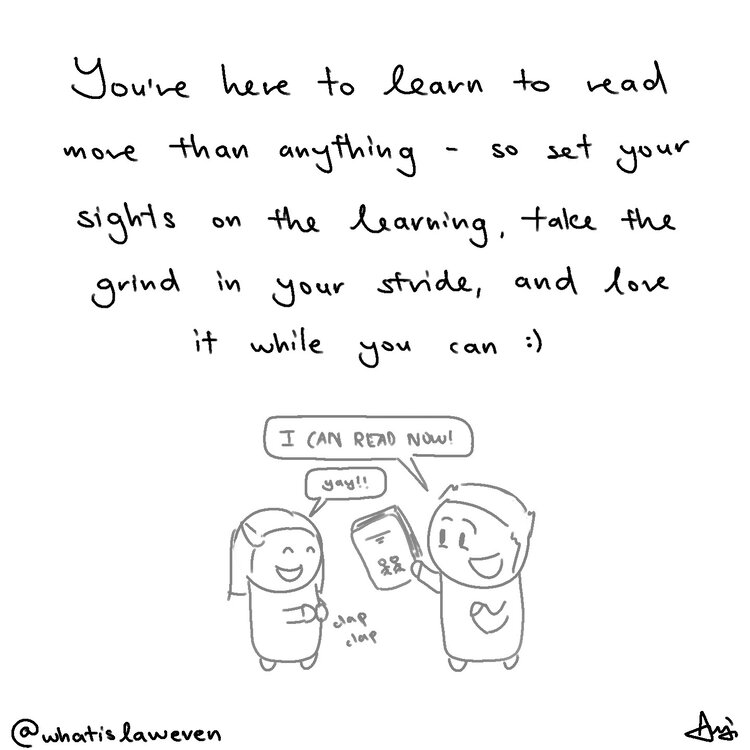 You're here to learn to read
more than anything - so set your
sights on the learning, take the
grind in your stride, and love
it while you can :)
I CAN READ NOW!
yay!!
clap
clap
@whatislaweven